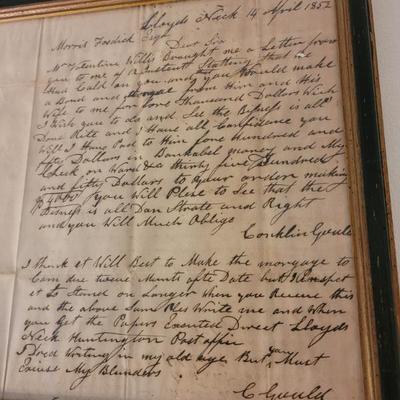 Lloyds Neck 14 April 1852
Morris Fosdick Esqr
Dear Sir
Mr Valentine Willis Brought me a Letter from
you to me of 12 Instant Stating that he
Had Cald on you and you Would make
a Bond and from Him and His
Wife to me for four thousand Dollars Wich
I Wish you to do and See the Bisness is all
Done Rite and I Have all Confidance you
Will I Have Paid to Him four hundred and
fifty Dollars in Bankabel money and My
Check on Ward & Co thirty five Hundred
and fifty Dollars to your order making
$4000 you Will Plese to See that the
Bisness is all Dan Strate and Right
and you Will Much Oblige
Conklin Gould
I think it Will Best to Make the morgage to
Cam due twelve Munts afte Date but I Expect
it to Stand on Longer when you Receve this
and the above Sum Ples Write me and When
you Get the Papers Executed Direct Lloyds
Neck Huntington Post offic
I Dred Writing in my old age But you Must
Excuse My Blunders
C Gould